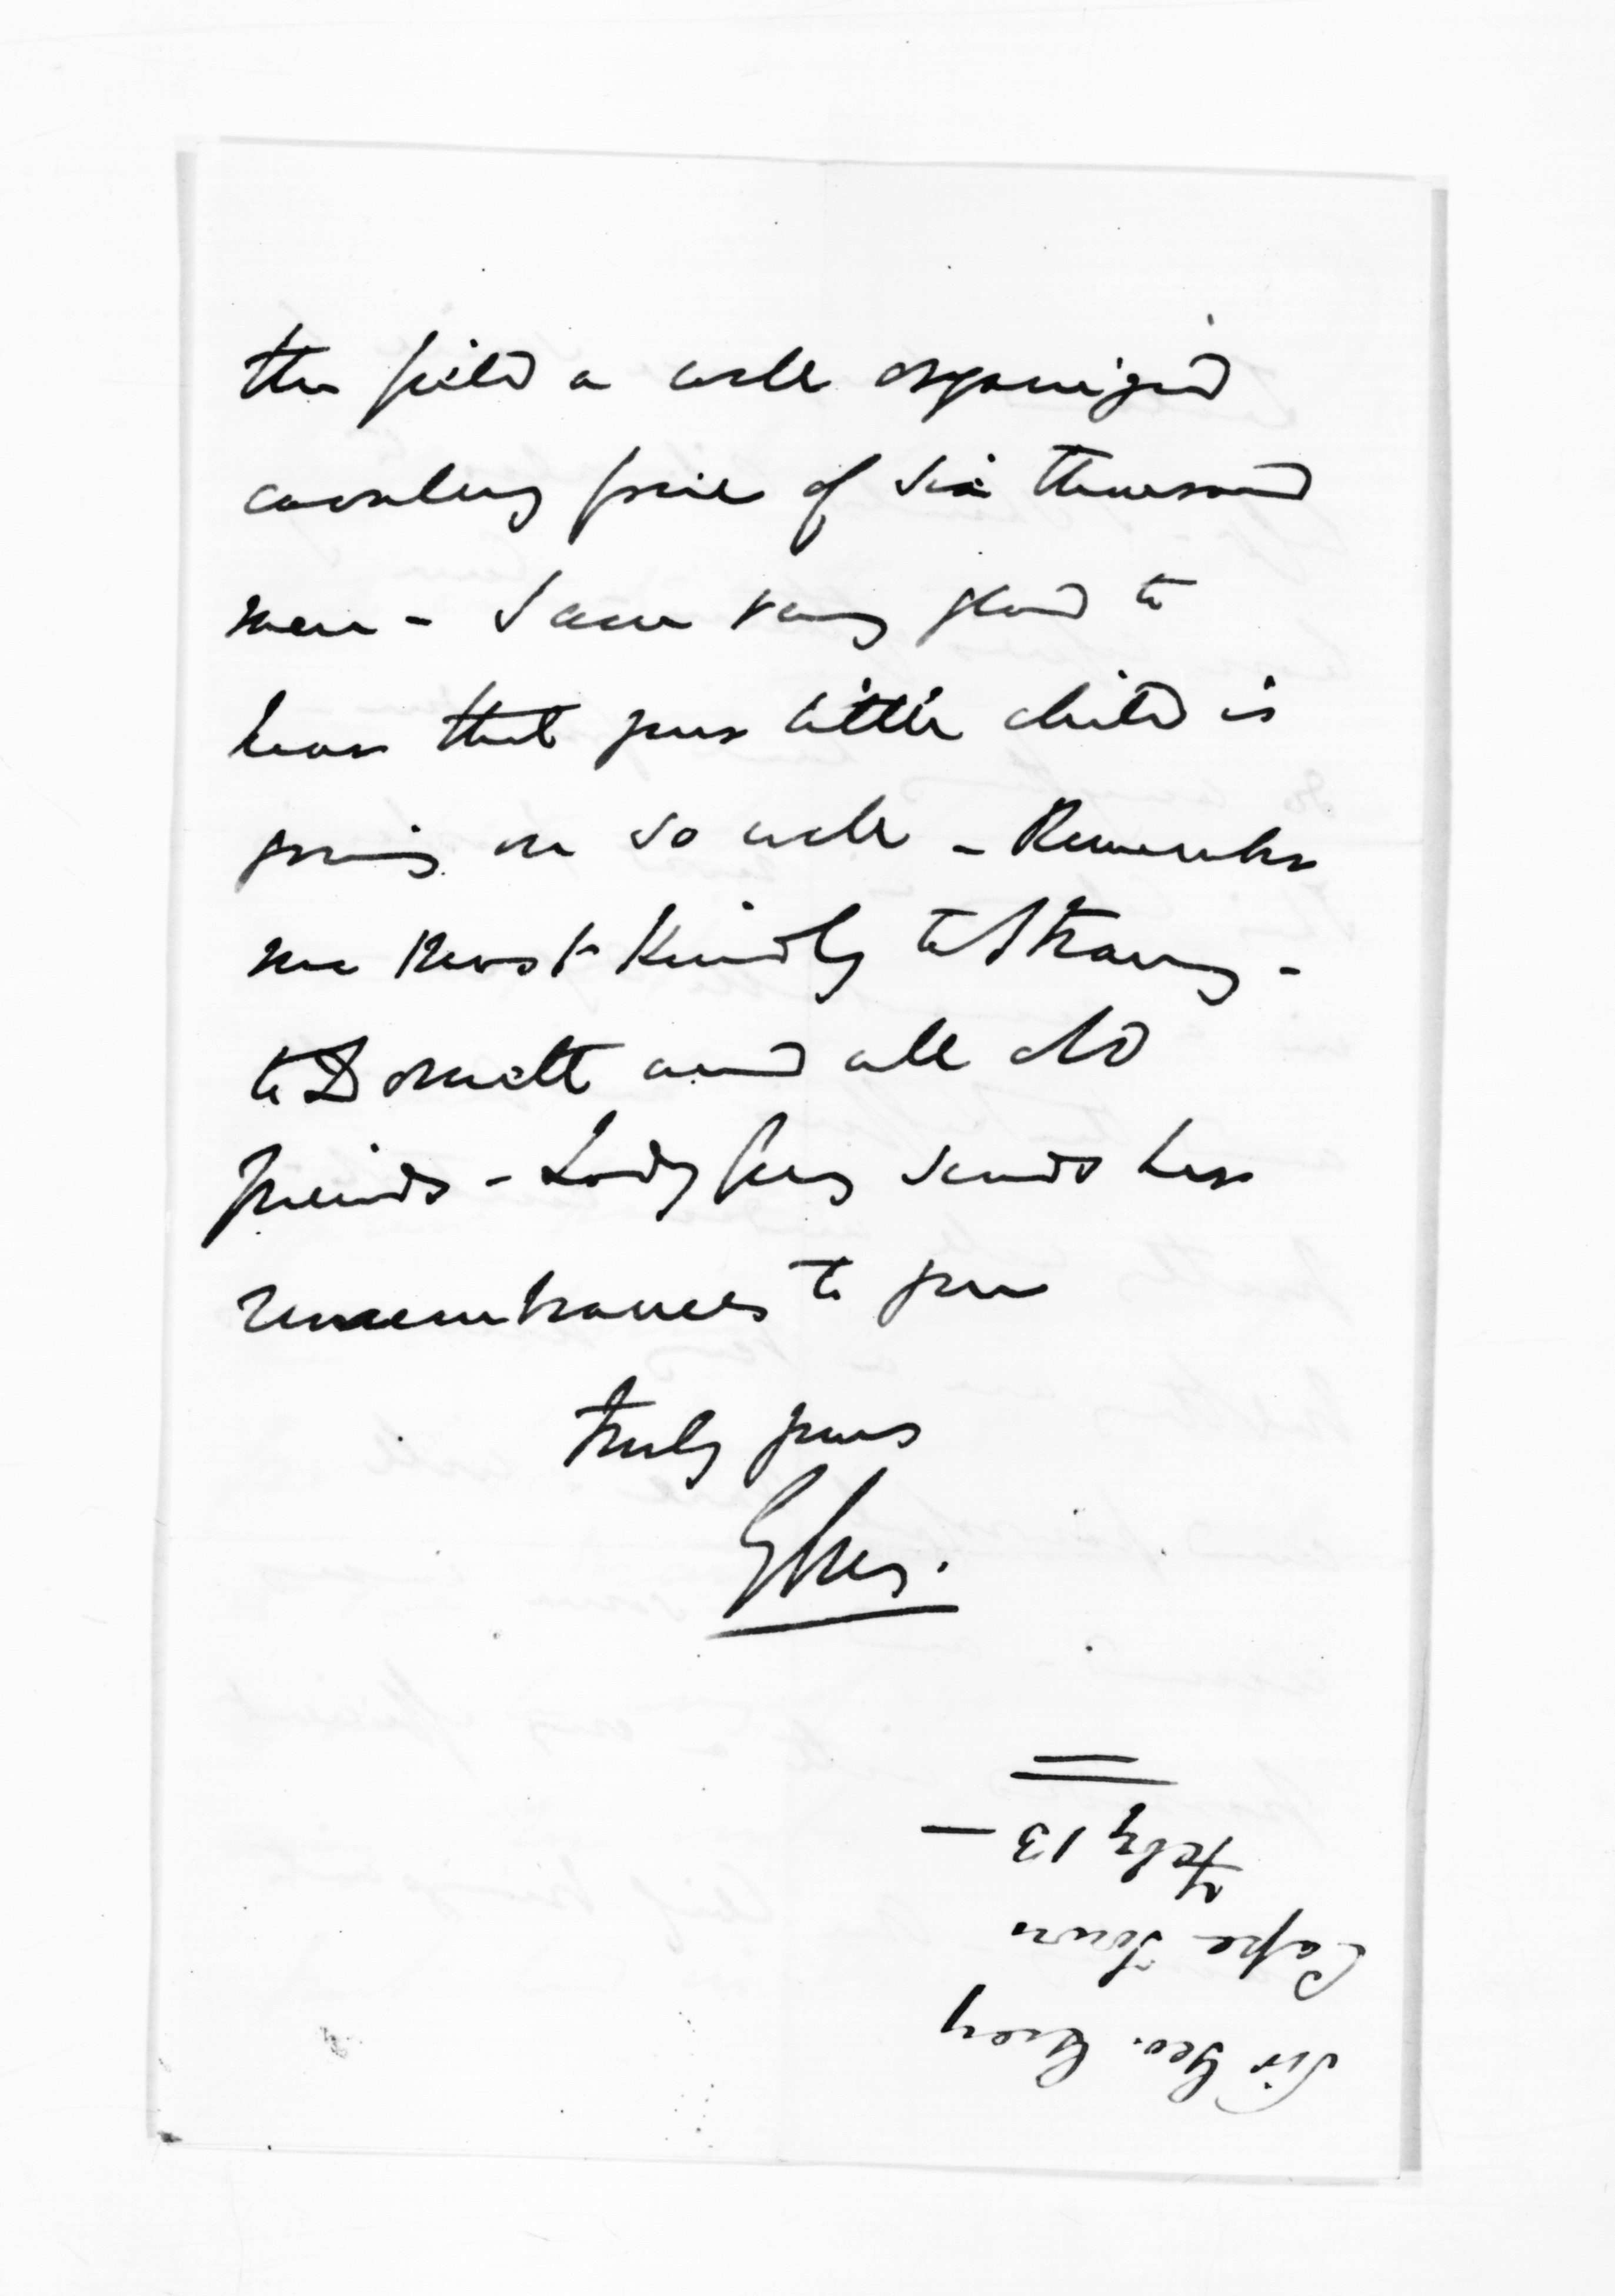 the field a well organized
cavalry force of six thousand
men - I am very glad to
hear that your little child is
going on so well - Remember
me most kindly to Strang -
to Domett and all old
friends - Lady Grey sends her
remembrances to you
truly yours
G Grey.
Sir Geo. Grey
Cape Town
Feby 13 -